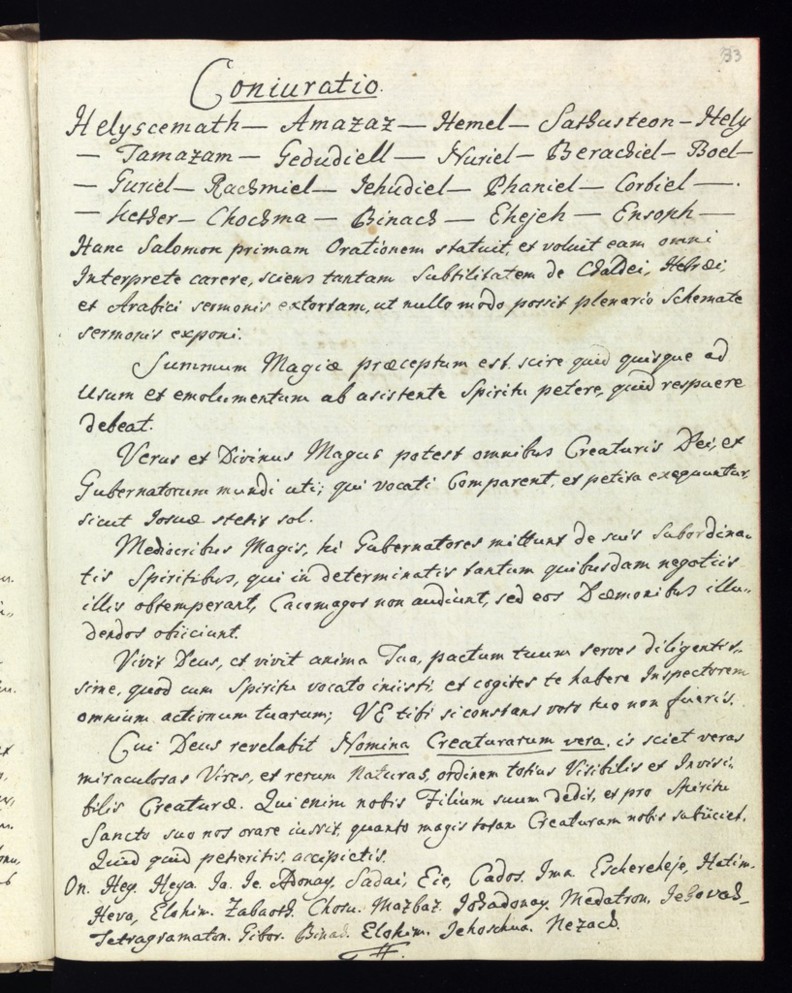 33
Coniuratio.
Helyscemath — Amazaz — Hemel — Sathusteon — Hely
— Tamazam — Gedudiell — Nuriel — Berachiel — Boel —
— Guriel — Rachmiel — Jehudiel — Phaniel — Corbiel —.
— Kether — Chochma — Binach — Ehejeh — Ensoph —
Hanc Salomon primam Orationem statuit, et voluit eam omni
Interprete carere, sciens tantam Subtilitatem de Chaldei, Hebræi,
et Arabici sermonis extortam, ut nullo modo possit plenario Schemate
sermonis exponi.
Summum Magiæ præceptum est scire quid quisque ad
Usum et emolumentum ab asistente Spiritu petere, quid respuere
debeat.
Verus et Divinus Magus potest omnibus Creaturis Dei, et
Gubernatorum mundi uti; qui vocati Comparent, et petita exequuntur,
sicut Josuæ stetit sol.
Mediocribus Magis, hi Gubernatores mittunt de suis Subordina„
tis Spiritibus, qui in determinatis tantum quibusdam negotiis
illis obtemperant, Cacomagos non audiunt, sed eos Dæmonibus illu„
dendos obiiciunt.
Vivit Deus, et vivit anima Tua, pactum tuum serves diligentis„
sime, quod cum Spiritu vocato iniisti, et cogites te habere Inspectorem
omnium actionum tuarum; VÆ tibi si constans voto tuo non fueris.
Cui Deus revelabit Nomina Creaturarum vera, is sciet veras
miraculosas Vires, et rerum Naturas, ordinem totius Visibilis et Invisi„
bilis Creaturæ. Qui enim nobis Filium suum dedit, et pro Spiritu
Sancto suo nos orare iussit, quanto magis totam Creaturam nobis subiiciet.
Quid quid petieritis, accipietis.
On. Hey. Heya. Ja. Je. Adonay, Sadai, Eie, Cados. Ima Eschereheje, Hatim.
Heva, Elohim. Zabaoth. Chosu. Mazbaz. Johadonay. Medatron. Jehovah_
Tetragramaton. Gibor. Binah. Elohim. Jehoschua. Nezach.